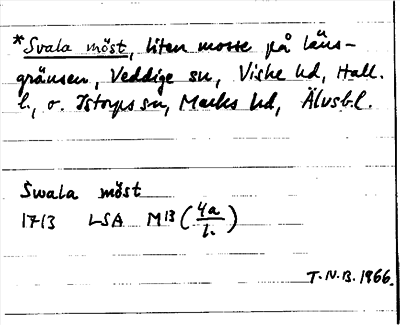 *Svala möst, liten mosse på läns-
gränsen, Veddige sn, Viske hd, Hall.
l., o. Istorps sn, Marks hd, Älvsb.l.
Swala möst
1713 LSA M13 (4a/l.)
T.N.B. 1966.